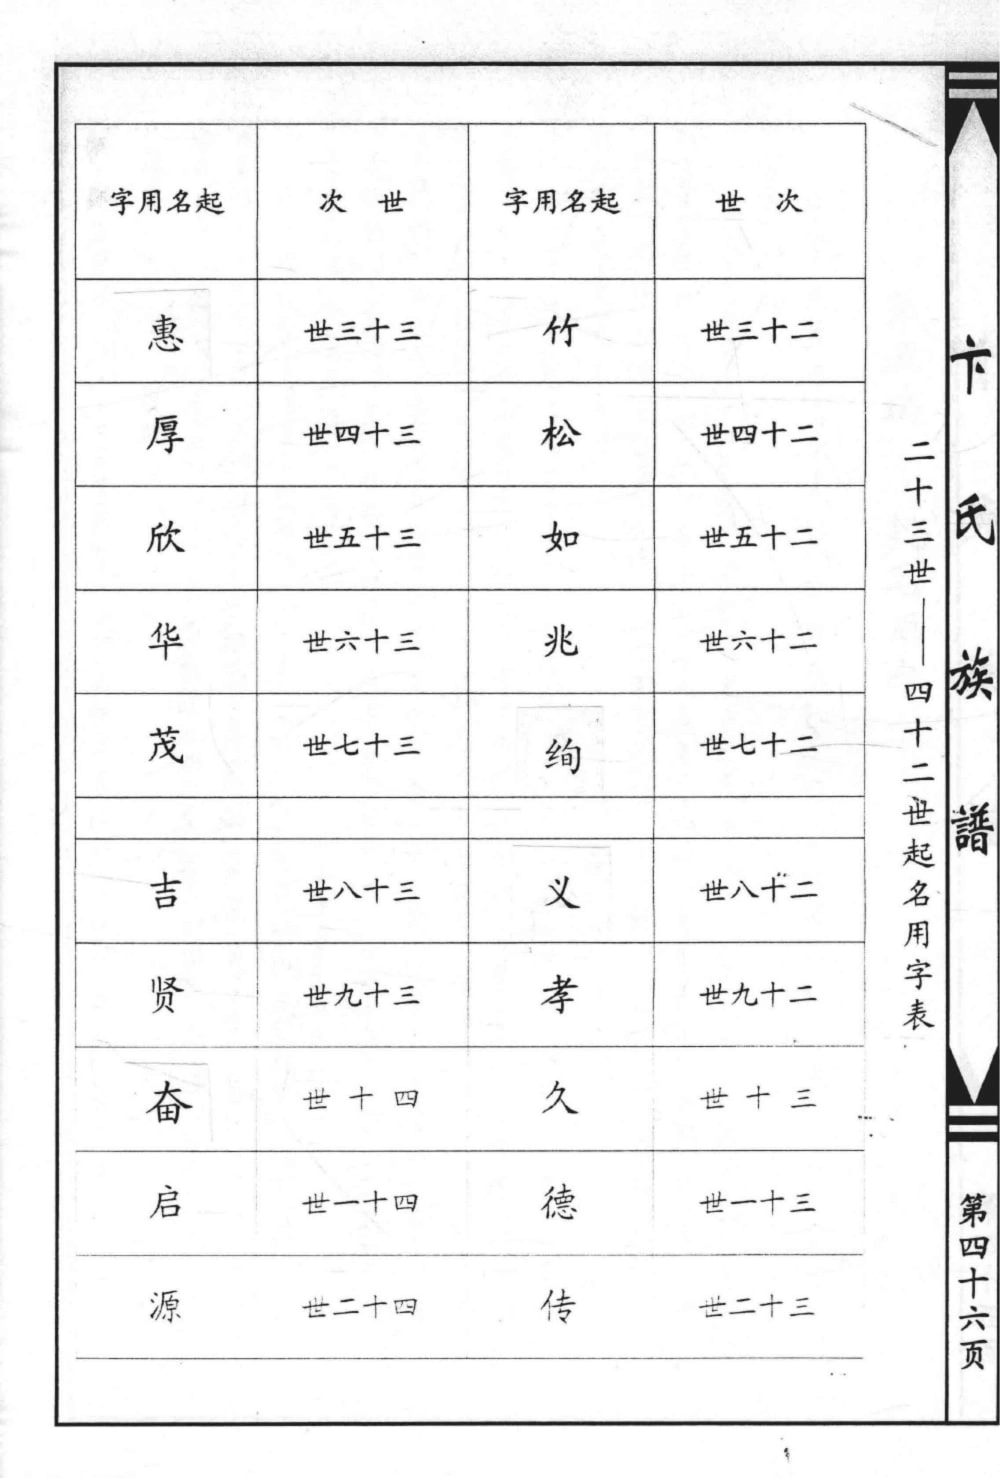 卞氏族譜
第四十六页
二十三世——四十二世起名用字表
世次 起名用字 世次 起名用字
二十三世 竹 三十三世 惠
二十四世 松 三十四世 厚
二十五世 如 三十五世 欣
二十六世 兆 三十六世 华
二十七世 绚 三十七世 茂
二十八世 义 三十八世 吉
二十九世 孝 三十九世 贤
三十世 久 四十世 奋
三十一世 德 四十一世 启
三十二世 传 四十二世 源